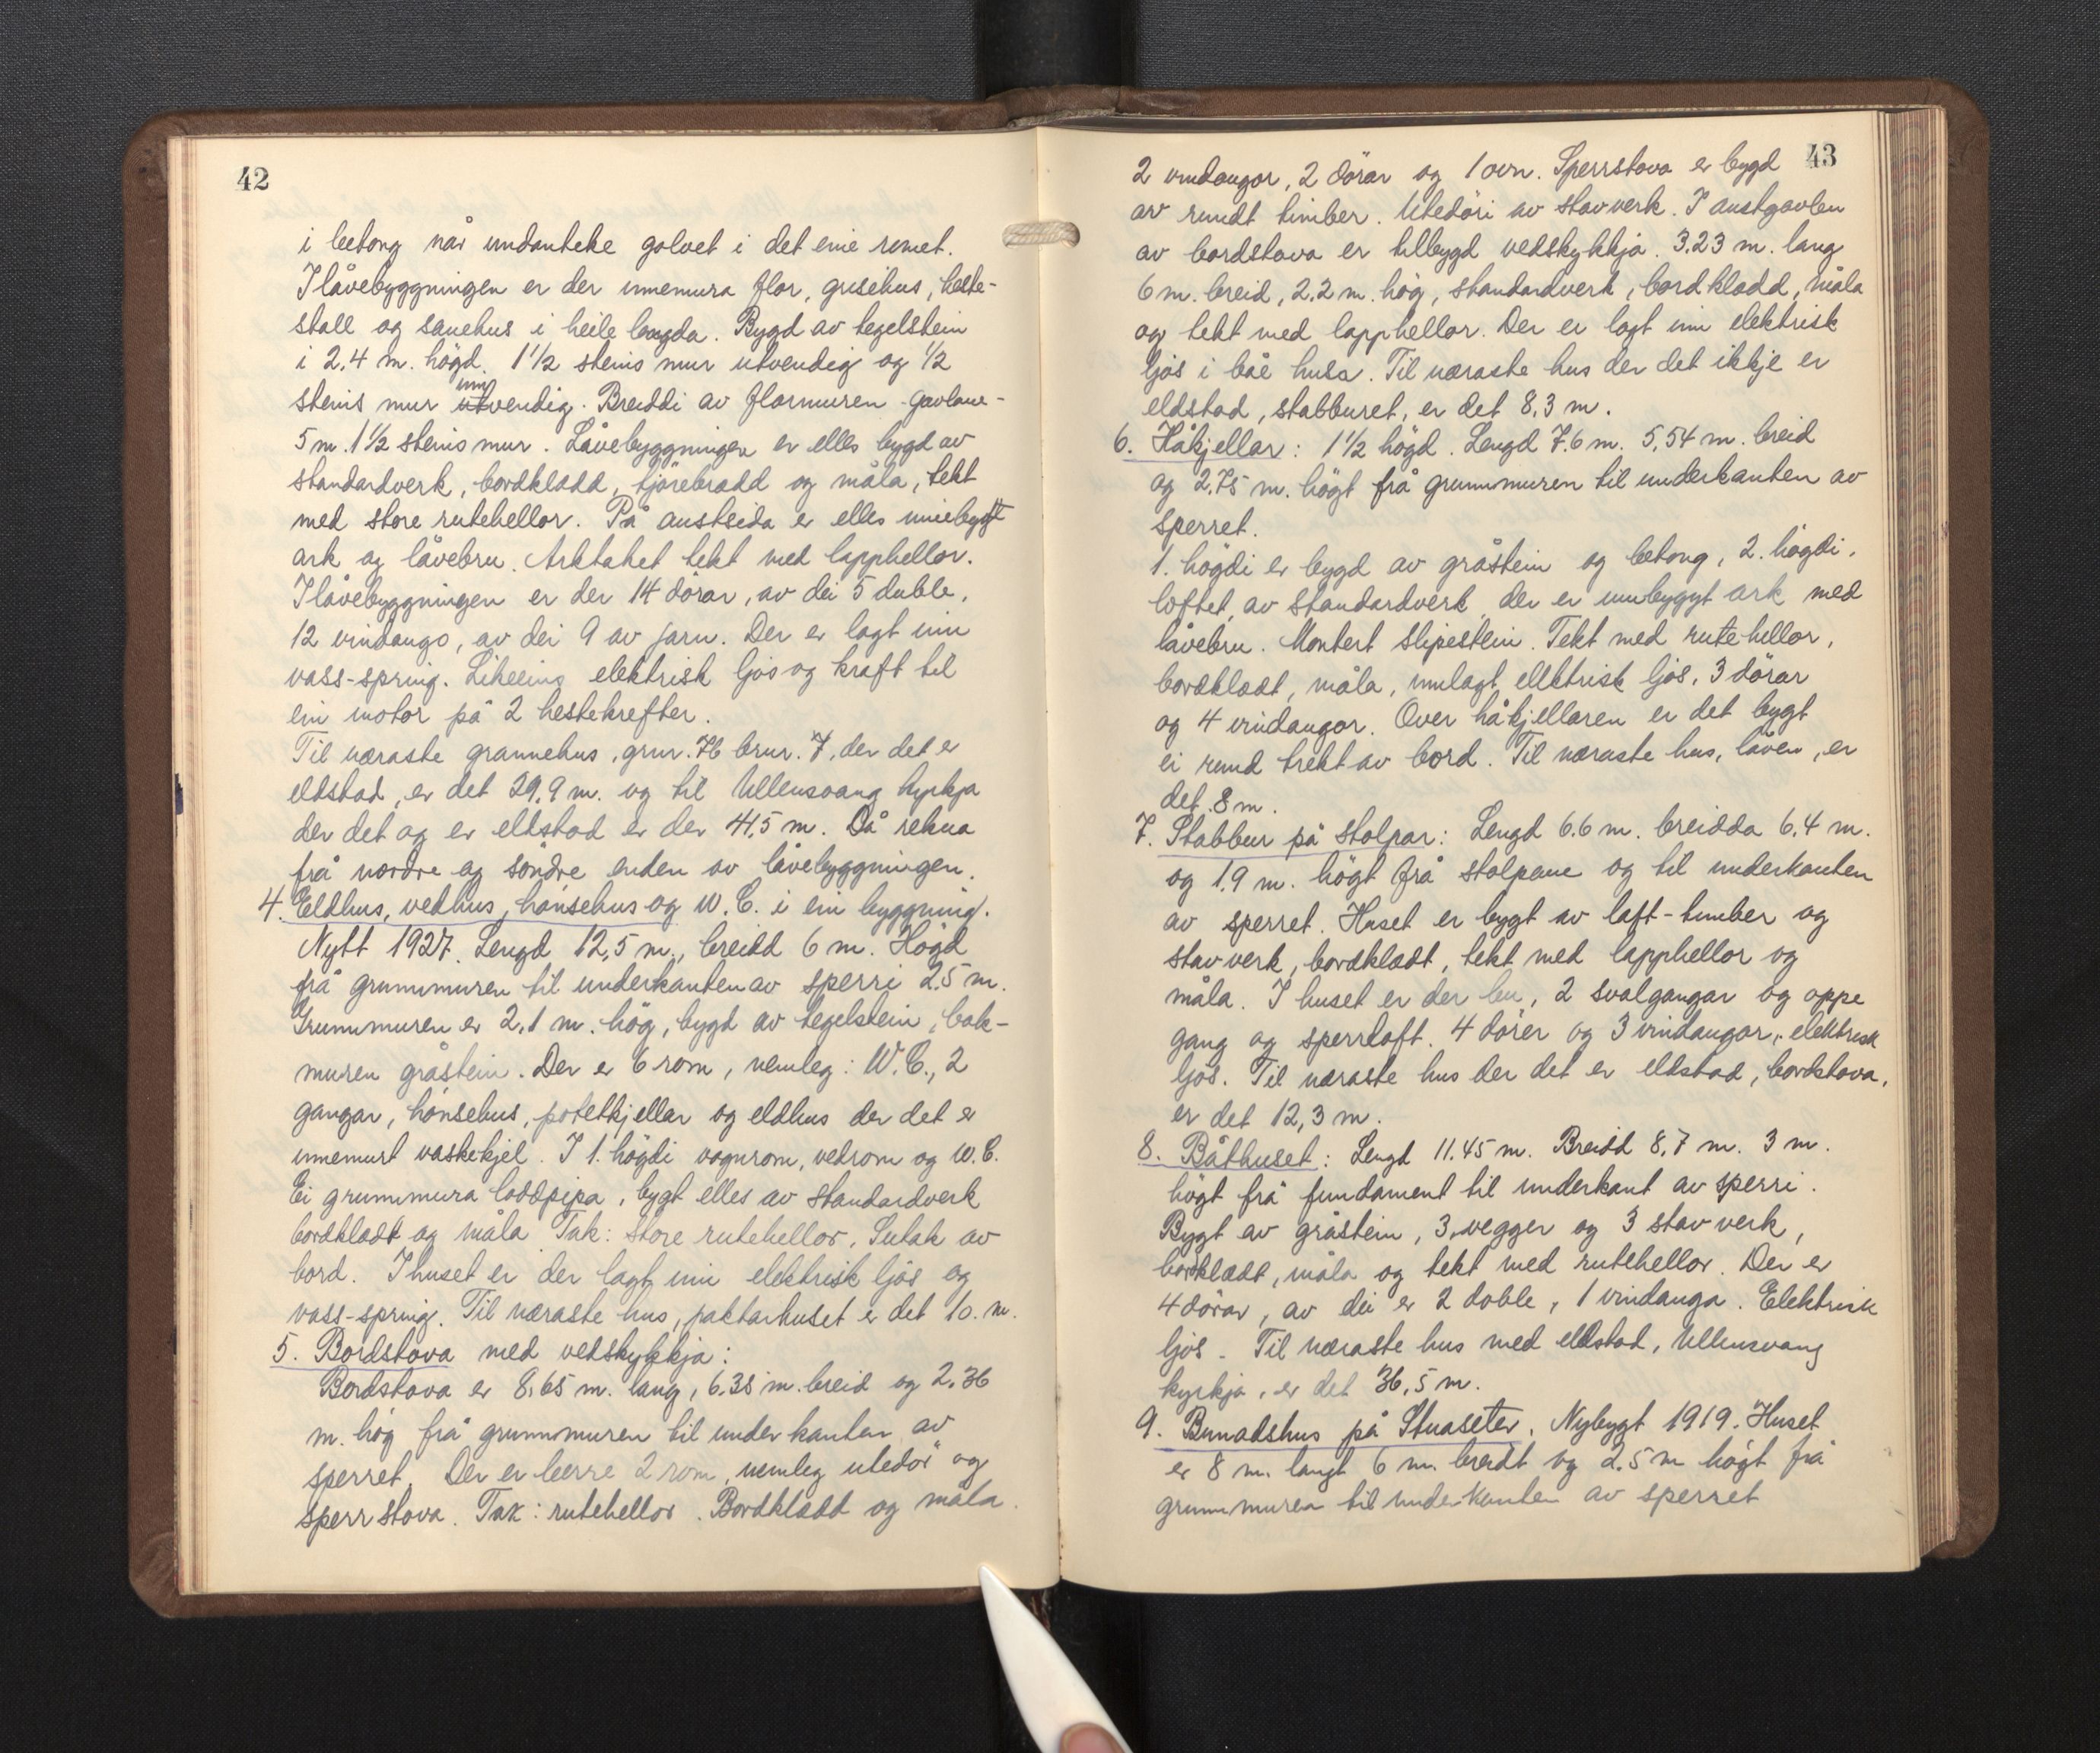 42
i betong når undanteke golvet i det eine romet.
I låvebyggningen er der innemura flor, grisehus, heste-
stall og sauehus i heile lengda. Bygd av tegelstein
i 2.4 m. högd. 1 1/2 steins mur utvendig og 1/2
steins mur utvendig. Breiddi av flormuren - gavlane -
inn
5 m. 1 1/2 steins mur. Låvebyggningen er elles bygd av
standardverk, bordkladd, tjörebradd og måla, tekt
med store rutehellor. På austsida er elles innebygt
ark og låvebru. Arktaket tekt med lapphellor.
I låvebyggningen er der 14 dörar, av dei 5 duble,
12 vindaugo, av dei 9 av jarn. Der er lagt inn
vass-spring. Likeeins elektrisk ljos og kraft til
ein motor på 2 hestekrefter.
Til næraste grannehus, gnr. 76 bnr. 7, der det er
eldstad, er det 29,9 m. og til Ullensvang kyrkja
der det og er eldstad er der 41,5 m. Då rekna
frå nordre og söndre enden av låvebyggningen.
4. Eldhus, vedhus, hönsehus og W.C. i ein byggning.
Nytt 1927. Lengd 12,5 m., breidd 6 m. Högd
frå grunnmuren til underkanten av sperri 2.5 m.
Grunnmuren er 2,1 m. hög, bygd av tegelstein, bak-
muren gråstein. Der er 6 rom, nemleg: W.C., 2
gangar, hönsehus, potetkjellar og eldhus der det er
innemurt vaskekjel. I 1. högdi vognrom, vedrom og W.C.
Ei grunnmura loddpipa, bygt elles av standardverk
bordkladt og måla Tak: Store rutehellor. Sutak av
bord. I huset er der lagt inn elektrisk ljos og
vass-spring. Til næraste hus, paktarhuset er det 10. m.
5. Bordstova med vedskykkja:
Bordstova er 8,65 m. lang, 6,38 m. breid og 2.36
m. hög frå grunnmuren til underkanten av
sperret. Der er berre 2 rom, nemleg utedör og
sperrstova. Tak: rutehellor. Bordkladd og måla.
43
2 vindaugor, 2 dörar og 1 ovn. Sperrstova er bygd
av rundt timber. Utedöri av stavverk. I austgavlen
av bordstova er tilbygd vedskykkja. 3.23 m. lang
6 m. breid, 2.2 m. hög, standardverk, bordkladd, måla
og tekt med lapphellor. Der er lagt inn elektrisk
ljos i båe husa. Til næraste hus der det ikkje er
eldstad, stabburet, er det 8,3 m.
6. Håkjellar: 1 1/2 högd. Lengd 7.6 m. 5,54 m. breid
og 2.75 m. högt frå grunnmuren til underkanten av
sperret.
1. högdi er bygd av gråstein og betong, 2. högdi,
loftet, av standardverk, der er innbygyt ark med
låvebru. Montert slipestein. Tekt med rutehellor,
bordkladt, måla, innlagt elektrisk ljos, 3 dörar
og 4 vindaugor. Over håkjellaren er det bygt
ei rund trekt av bord. Til næraste hus, låven, er
det 8 m.
7. Stabbur på stolpar: Lengd 6.6 m. breidda 6,4 m.
og 1.9 m. högt frå stolpane og til underkanten
av sperret. Huset er bygt av laft-timber og
stavverk, bordkladt, tekt med lapphellor og
måla. I huset er der bu, 2 svalgangar og oppe
gang og sperrloft. 4 dörer og 3 vindaugor, elektrisk
ljos. Til næraste hus der det er eldstad, bordstova,
er det 12,3 m.
8. Båthuset: Lengd 11.45 m. Breidd 8,7 m. 3 m.
högt frå fundament til underkant av sperri.
Bygt av gråstein, 3 vegger og 3 stavverk,
bordkladt, måla og tekt med rutehellor. Der er
4 dörar, av dei er 2 doble, 1 vindauga. Elektrisk
ljos. Til næraste hus med eldstad, Ullensvang
kyrkja, er det 36,5 m.
9. Bunadshus på Stuaseter. Nybygt 1919. Huset
er 8 m. langt 6 m. breidt og 2.5 m högt frå
grunnmuren til underkanten av sperret